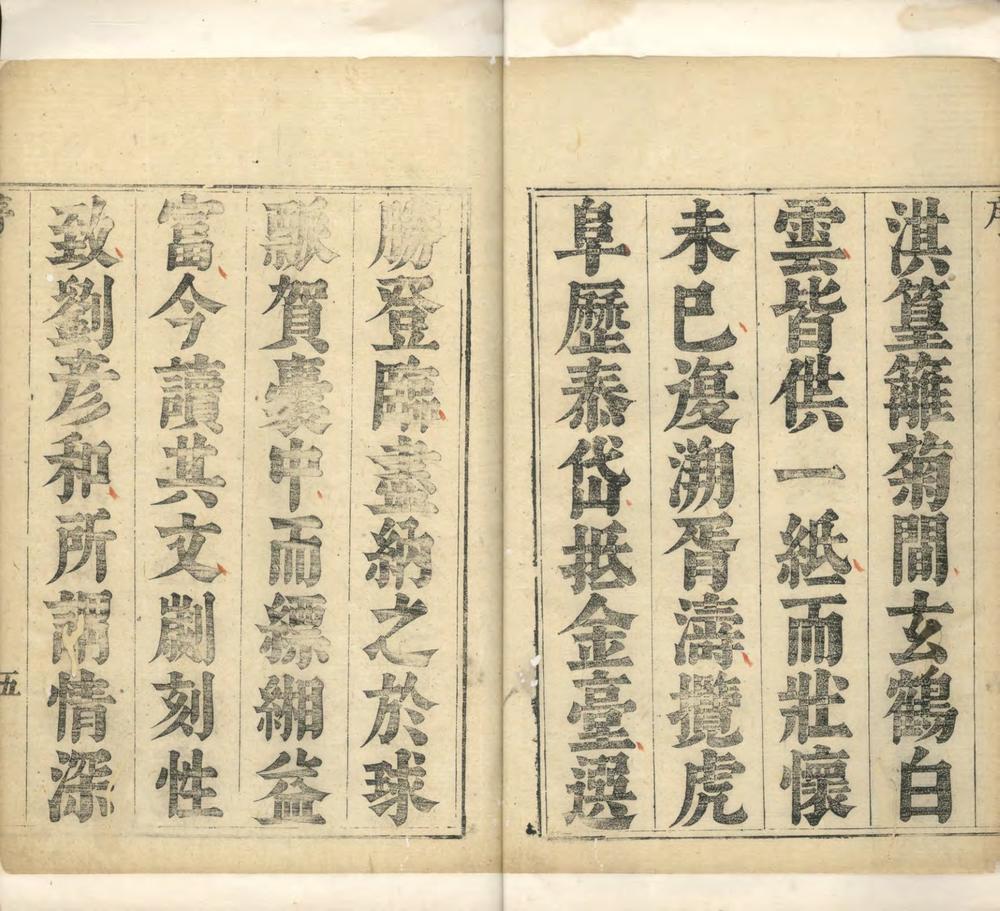 淇篁籬菊間玄鶴白
雲皆供一紙而壯懷
未已復溯胥濤攬虎
阜歷泰岱抵金臺選
勝登臨盡納之於球
甌賀囊中而縹緗益
富今讀其文劌刻性
致劉彥和所謂情深
五